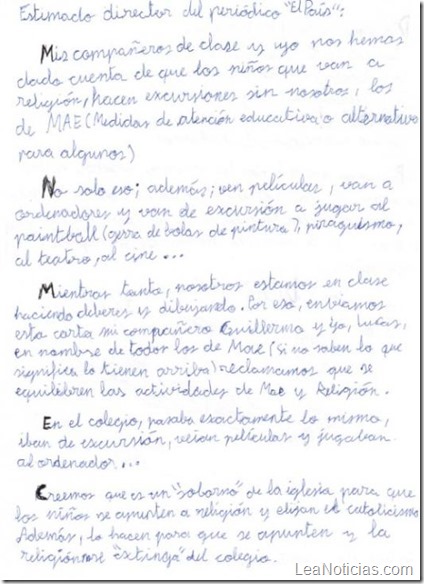 Estimado director del periódico "El País":
Mis compañeros de clase y yo nos hemos
dado cuenta de que los niños que van a
religión, hacen excursiones sin nosotros, los
de MAE (Medidas de atención educativa o alternativa
para algunos)
No solo eso; además; ven películas, van a
ordenadores y van de excursión a jugar al
paintball (gerra de bolas de pintura), piragüismo,
al teatro, al cine...
Mientras tanto, nosotros estamos en clase
haciendo deberes y dibujando. Por eso, enviamos
esta carta mi compañero Guillermo y yo, Lucas,
en nombre de todos los de Mae (si no saben lo que
significa lo tienen arriba) reclamamos que se
equilibren las actividades de Mae y Religión.
En el colegio, pasaba exactamente lo mismo,
iban de excursión, veían películas y jugaban
al ordenador...
Creemos que es un "soborno" de la iglesia para que
los niños se apunten a religión y elijan el catolicismo
Además, lo hacen para que se apunten y la
religión no se "extinga" del colegio.
LeaNoticias.com